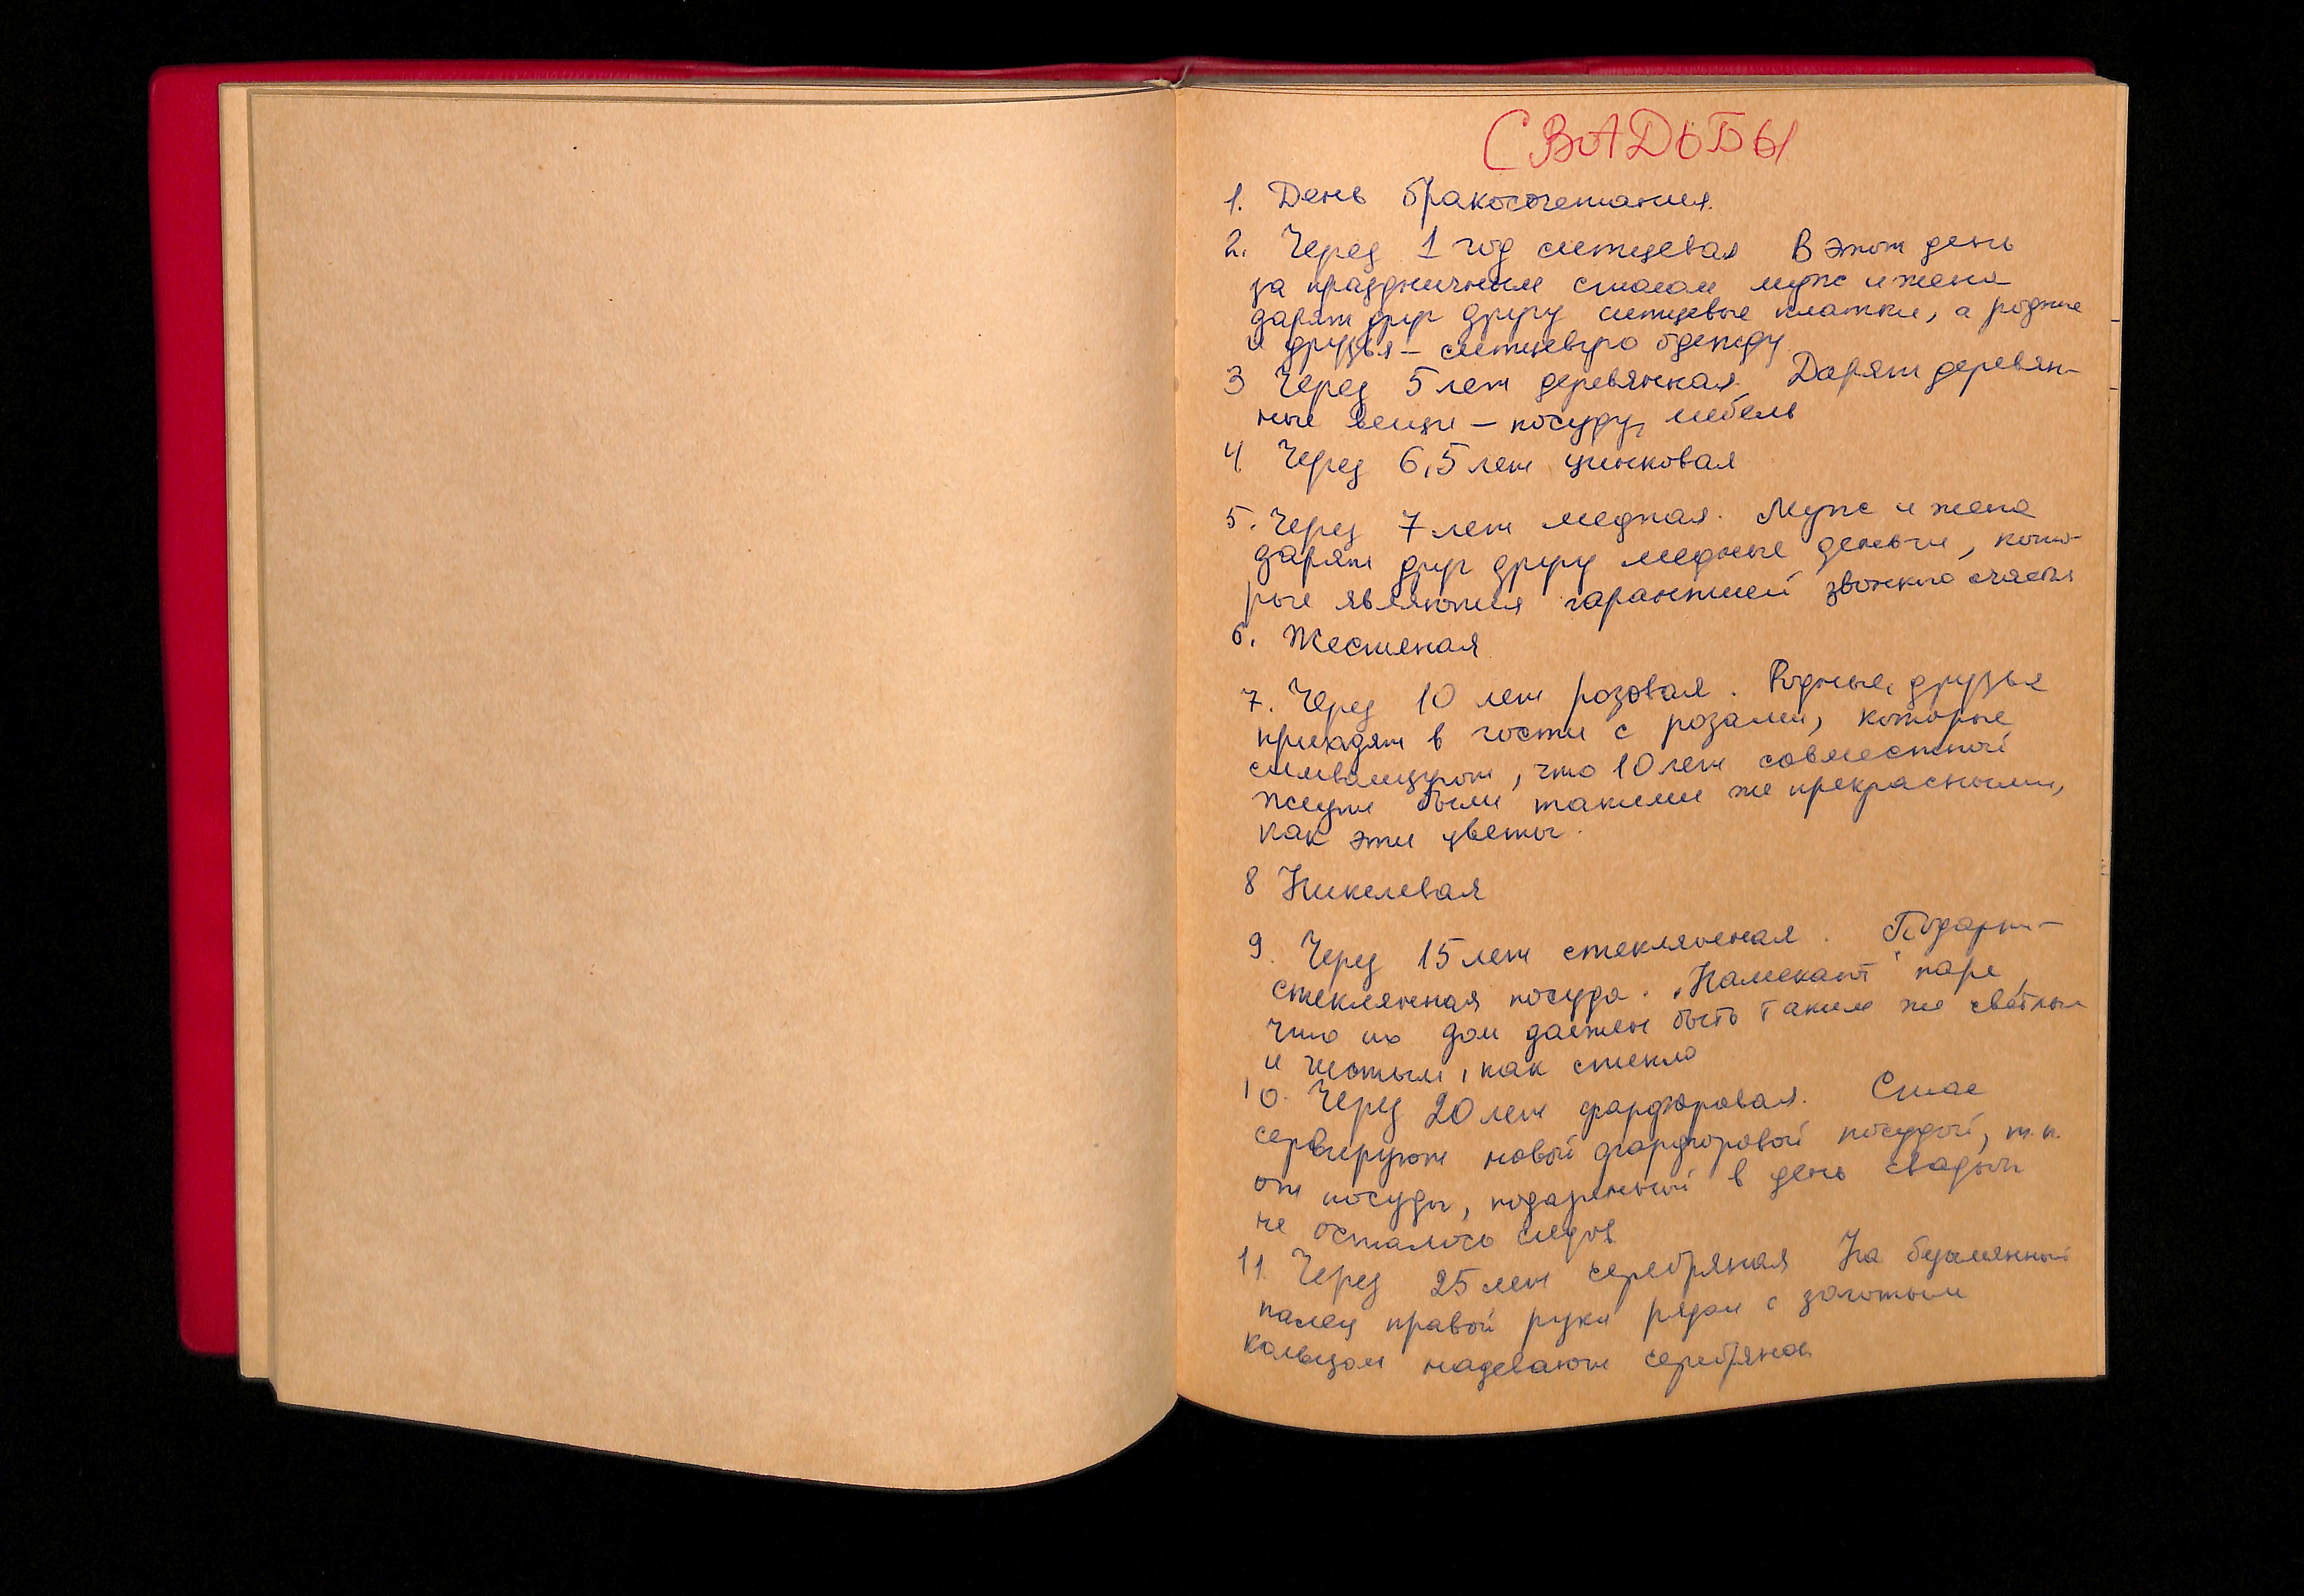 СВАДЬБЫ
1. День бракосочетания.
2. Через 1 год ситцевая В этот день
за праздничным столом муж и жена
дарят друг другу ситцевые платки, а родные
и друзья – ситцевую одежду
3 Через 5 лет деревянная. Дарят деревян-
ные вещи – посуду, мебель
4 Через 6,5 лет цинковая
5. Через 7 лет медная. Муж и жена
дарят друг другу медные деньги, кото-
рые являются гарантией звонкого счастья
6. Жестяная
7. Через 10 лет розовая. Родные, друзья
приходят в гости с розами, которые
символизируют, что 10 лет совместной
жизни были такими же прекрасными,
как эти цветы.
8 Никелевая
9. Через 15 лет стеклянная. Подарки –
стеклянная посуда. Намекают паре,
что их дом должен быть таким же светлым
и чистым, как стекло
10. Через 20 лет фарфоровая. Стол
сервируют новой фарфоровой посудой, т.к.
от посуды, подаренной в день свадьбы
не осталось следов
11. Через 25 лет серебряная На безымянный
палец правой руки рядом с золотым
кольцом надевают серебряное.